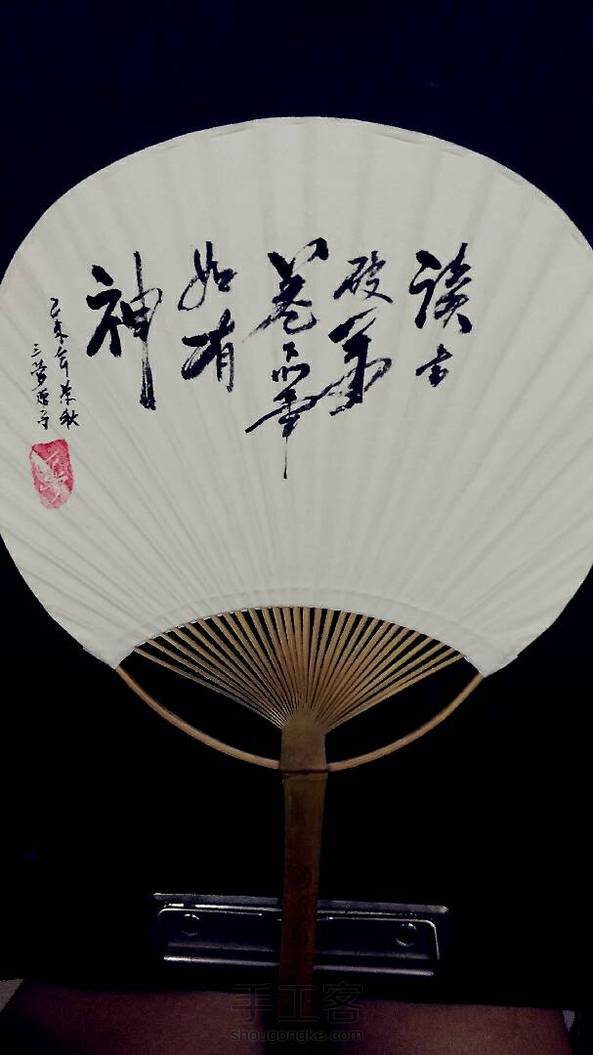 读书
破萬
卷下筆
如有
神
乙未年秋
手工客
shougongke.com